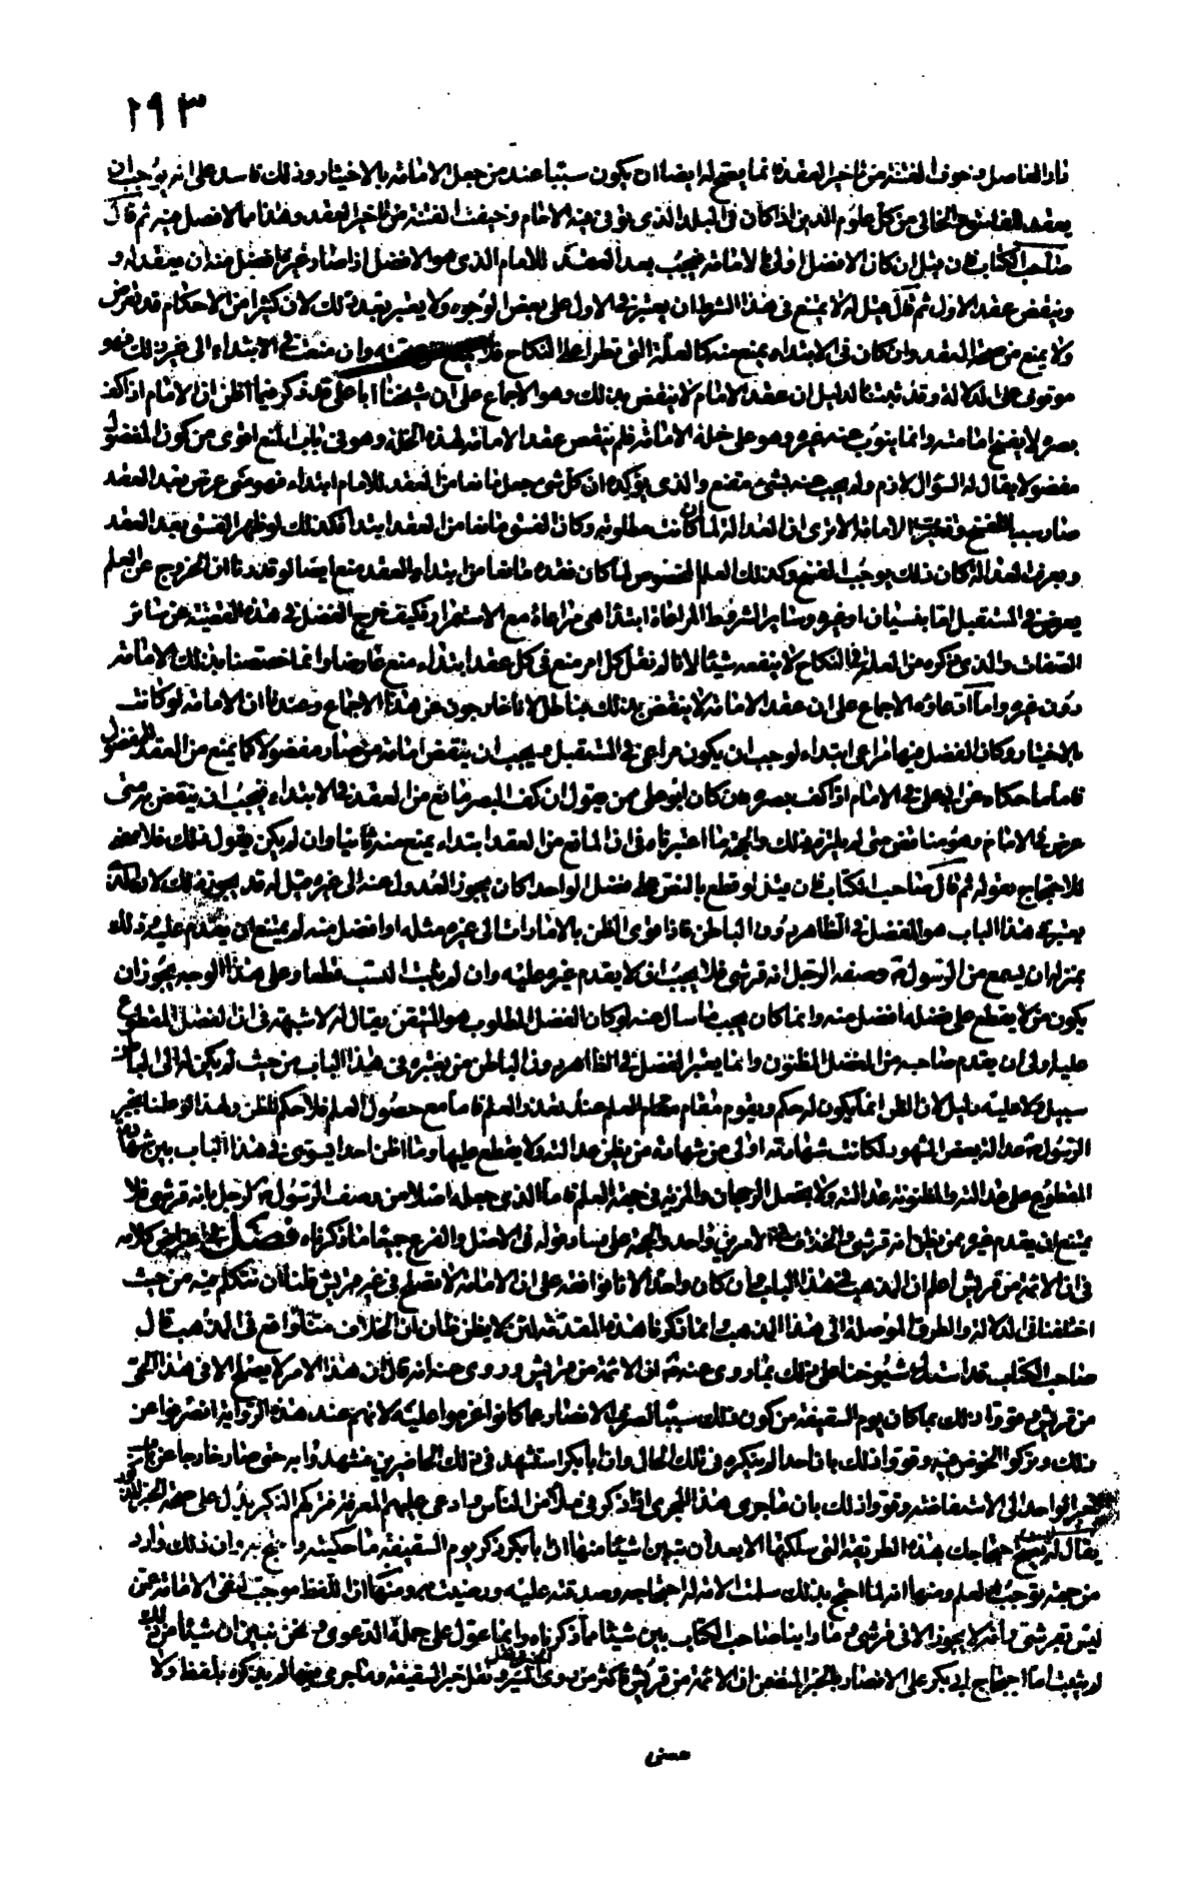 ٢٩٣
فاد الفاضل وخوف الفتنة من تأخير العقد فما يصح له ايضا ان يكون سببا عند من جعل الامامة بالاختيار وذلك فاسد على انه يوجب ان
يعقد للفاسق الخالي من كل علوم الدين اذا كان في البلد الذي توفي فيه الامام وخيفت الفتنة من تأخير العقد وهذا مما لا فصل فيه ثم قال
صاحب الكتاب فان قيل ان كان الافضل اولى بالامامة فيجب بعد العقد للامام الذي هو الافضل اذا صار غيره افضل منه ان يعقد له و
ينتقض عقد الاول ثم قال قيل له لا يمتنع في هذا الشرط ان يعتبر في الاول على بعض الوجوه ولا يعتبر بعد ذلك لان كثيرا من الاحكام قد تعرض
ولا يمنع من صحة العقد وان كان في الابتداء يمنع منه كالعدة التي تطرا على النكاح فلا وان منعت في الابتداء الى غير ذلك فهو
موقوف على الدلالة وقد ثبت بالدليل ان عقد الامام لا ينتقض بذلك وهو الاجماع على ان شيخنا ابا علي قد ذكر فيما اظن ان الامام اذا كف
بصره لا يفسخ امامته وانما ينوب عنه غيره وهو على حملة الامامة فلم ينتقض عقد الامامة لهذه العلة وهو في باب المنع اقوى من كون المفضول
مفضولا يقال له السؤال لازم ولم يجب عنه بشيء مقنع والذي يؤكده ان كل شيء جعل مانعا من العقد للامام ابتداء فهو متى عرض بعد العقد
صار سببا للفسخ الامامة الا ترى ان العدالة لما كانت مطلوبة وكان الفسق مانعا من العقد ابتدا فكذلك لو ظهر الفسق بعد العقد
وبعد العدالة كان ذلك يوجب الفسخ وكذلك العلم المخصوص لما كان فقده مانعا من ابتداء العقد منع ايضا لو قدرنا ان الخروج عن العلم
يعرض في المستقبل اما بنسيان او غيره وسائر الشروط المراعاة ابتدا هي مراعاة مع الاستمرار فكيف خرج الفضل في هذه القضية عن سائر
الصفات والذي ذكره من العدة في النكاح لا ينفعه شيئا لانا لم نقل كل امر منع في كل عقد ابتداء منع عارضا وانما خصصنا بذلك الامامة
دون غيره واما ادعاؤه الاجماع على ان عقد الامامة لا ينتقض بذلك فباطل لانا خارجون عن هذا الاجماع وعندنا ان الامامة لو كانت
بالاختيار وكان الفضل فيها مراعى ابتداء لوجب ان يكون مراعى في المستقبل فيجب ان ينتقض امامة من صار مفضولا كما يمنع من العقد للمفضول
فاما ما حكاه عن ابي علي في الامام اذا كف بصره فان كان ابو علي ممن يقول ان كف البصر مانع من العقد في الابتداء فيجب ان ينتقض به متى
عرض في الامام وهو مناقض متى لم يلتزم ذلك والحجة ما اعتبرناه في ان المانع من العقد ابتداء يمنع منه ثانيا وان لم يكن يقول ذلك فلا معنى
للاحتجاج بقوله ثم قال صاحب الكتاب فان قيل لو قطع بالنص على فضل الواحد اكان يجوز العدول عنه الى غيره قيل له قد يجوز ذلك لان الذي
يعتبر في هذا الباب هو الفضل في الظاهر دون الباطن فاذا قوى الظن بالامارات الى غيره مثله او افضل منه لم يمتنع ان يقدم عليه وذلك
بمنزلة ان يسمع من الرسول وصفه الرجل انه قرشي فلا يجب ان لا يقدم غيره عليه وان لم يثبت النسب قطعا وعلى هذا الوجه يجوز ان
يكون من لا يقطع على فضله افضل منه وانما كان يجب ما سال عنه لو كان الفضل المطلوب هو المتيقن يقال له لا شبهة في ان الفضل المقطوع
عليه اولى ان يقدم صاحبه من الفضل المظنون وانما يعتبر الفضل في الظاهر دون الباطن من يعتبره في هذا الباب من حيث لم يكن له الى الباطن
سبيل ولا عليه دليل لان الظن انما يكون له حكم ويقوم مقام العلم عند تعذر العلم فاما مع حصول العلم فلا حكم للظن ولهذا لو علمنا بخبر
الرسول عدالة بعض الشهود لكانت شهادته اولى من شهادة من يظن عدالته ولا يقطع عليها وما اظن احدا يسوي في هذا الباب بين شهادة
المقطوع على عدالته والمظنونة عدالته ولا يجعل الرجحان والمزية في جهة العلم فاما الذي جعله اصلا من وصف الرسول لرجل بانه قرشي فلا
يمتنع ان يقدم غيره ممن يظن انه قرشي الامرين واحد والحجة على فساد قوله في الاصل والفرع جميعا ما ذكرناه فصل في اعتراض كلامه
في ان الائمة من قريش اعلم ان المذهب في هذا الباب وان كان واحدا لانا نوافقه على ان الامامة لا تصلح في غير قريش فلنا ان نتكلم فيه من حيث
اختلفنا في الدلالة والطرق الموصلة الى هذا المذهب وانما ذكرنا هذه المقدمة لئلا يظن ظان ان الخلاف منا واقع في المذهب قال
صاحب الكتاب قد استدل شيوخنا على ذلك بما روي عنه ان الائمة من قريش وروي عنه انه قال ان هذا الامر لا يصلح الا في هذا الحي
من قريش وقووا ذلك بما كان يوم السقيفة من كون ذلك سببا لصرف الانصار عما كانوا عزموا عليه لانهم عند هذه الرواية انصرفوا عن
ذلك وتركوا الخوض فيه وقووا ذلك بان احدا لم ينكره في تلك الحال وان ابا بكر استشهد في ذلك الحاضرين فشهدوا به حتى صار خارجا عن باب
خبر الواحد الى الاستفاضة وقووا ذلك بان ما جرى هذا المجرى اذا ذكر في ملا من الناس وادعى عليهم المعرفة فتركهم النكير يدل على صحة الخبر
يقال له ليس احتجاجك بهذه الطريقة التي سلكتها الا بعد ان تبين اشياء منها ان ابا بكر ذكر يوم السقيفة ما حكيته واحتج به وان ذلك وارد
من جهة توجب العلم ومنها انه لما احتج بذلك سلمت الامة له احتجاجه وصدقته عليه ورضيت به ومنها ان اللفظ موجب لنفي الامامة عمن
ليس بقرشي وانه لا يجوز الا في قرشي وما راينا صاحب الكتاب بين شيئا مما ذكرناه وانما عول على جملة الدعوى ونحن نبين ان شيئا من ذلك
لم يثبت اما احتجاج ابي بكر على الانصار بالخبر المتضمن ان الائمة من قريش فاكثر من روى السير ونقل خبر السقيفة وما جرى فيها لم يذكره بلفظ ولا
معنى